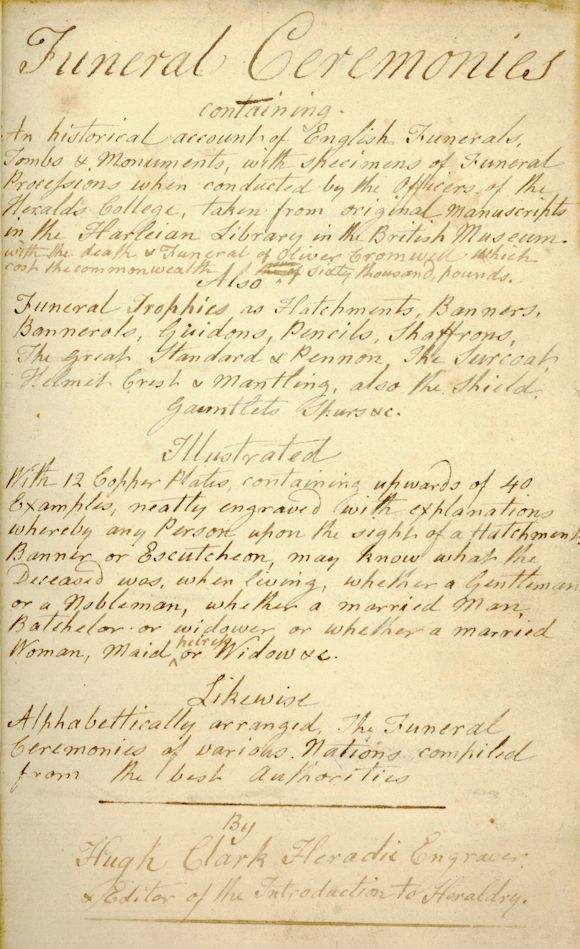 Funeral Ceremonies
containing.
An historical account of English Funerals,
Tombs & Monuments, with specimens of Funeral
Processions when conducted by the Officers of the
Herald's College, taken from original Manuscripts
in the Harleian Library in the British Museum.
with the death & Funeral of Oliver Cromwell which
cost the commonwealth sixty thousand, pounds.
Also
Funeral Trophies as Hatchments, Banners,
Bannerols, Guidons, Pencils, Shaffrons,
The great Standard & Pennon, The Surcoat,
Helmit Crest & Mantling, also the Shield,
Gauntlets Spurs &c.
Illustrated
With 12 Copper Plates, containing upwards of 40
Examples, neatly engraved with explanations
whereby any Person upon the sight of a Hatchment,
Banner or Escutcheon, may know what the
Deceased was, when living, whether a Gentleman
or a Nobleman, whether a married Man,
Batchelor or widower or whether a married
Woman, Maid heiress or Widow &c.
Likewise
Alphabettically arranged, The Funeral
Ceremonies of various Nations compiled
from the best Authorities
By
Hugh Clark Heradic Engraver
& Editor of the Introduction to Heraldry.